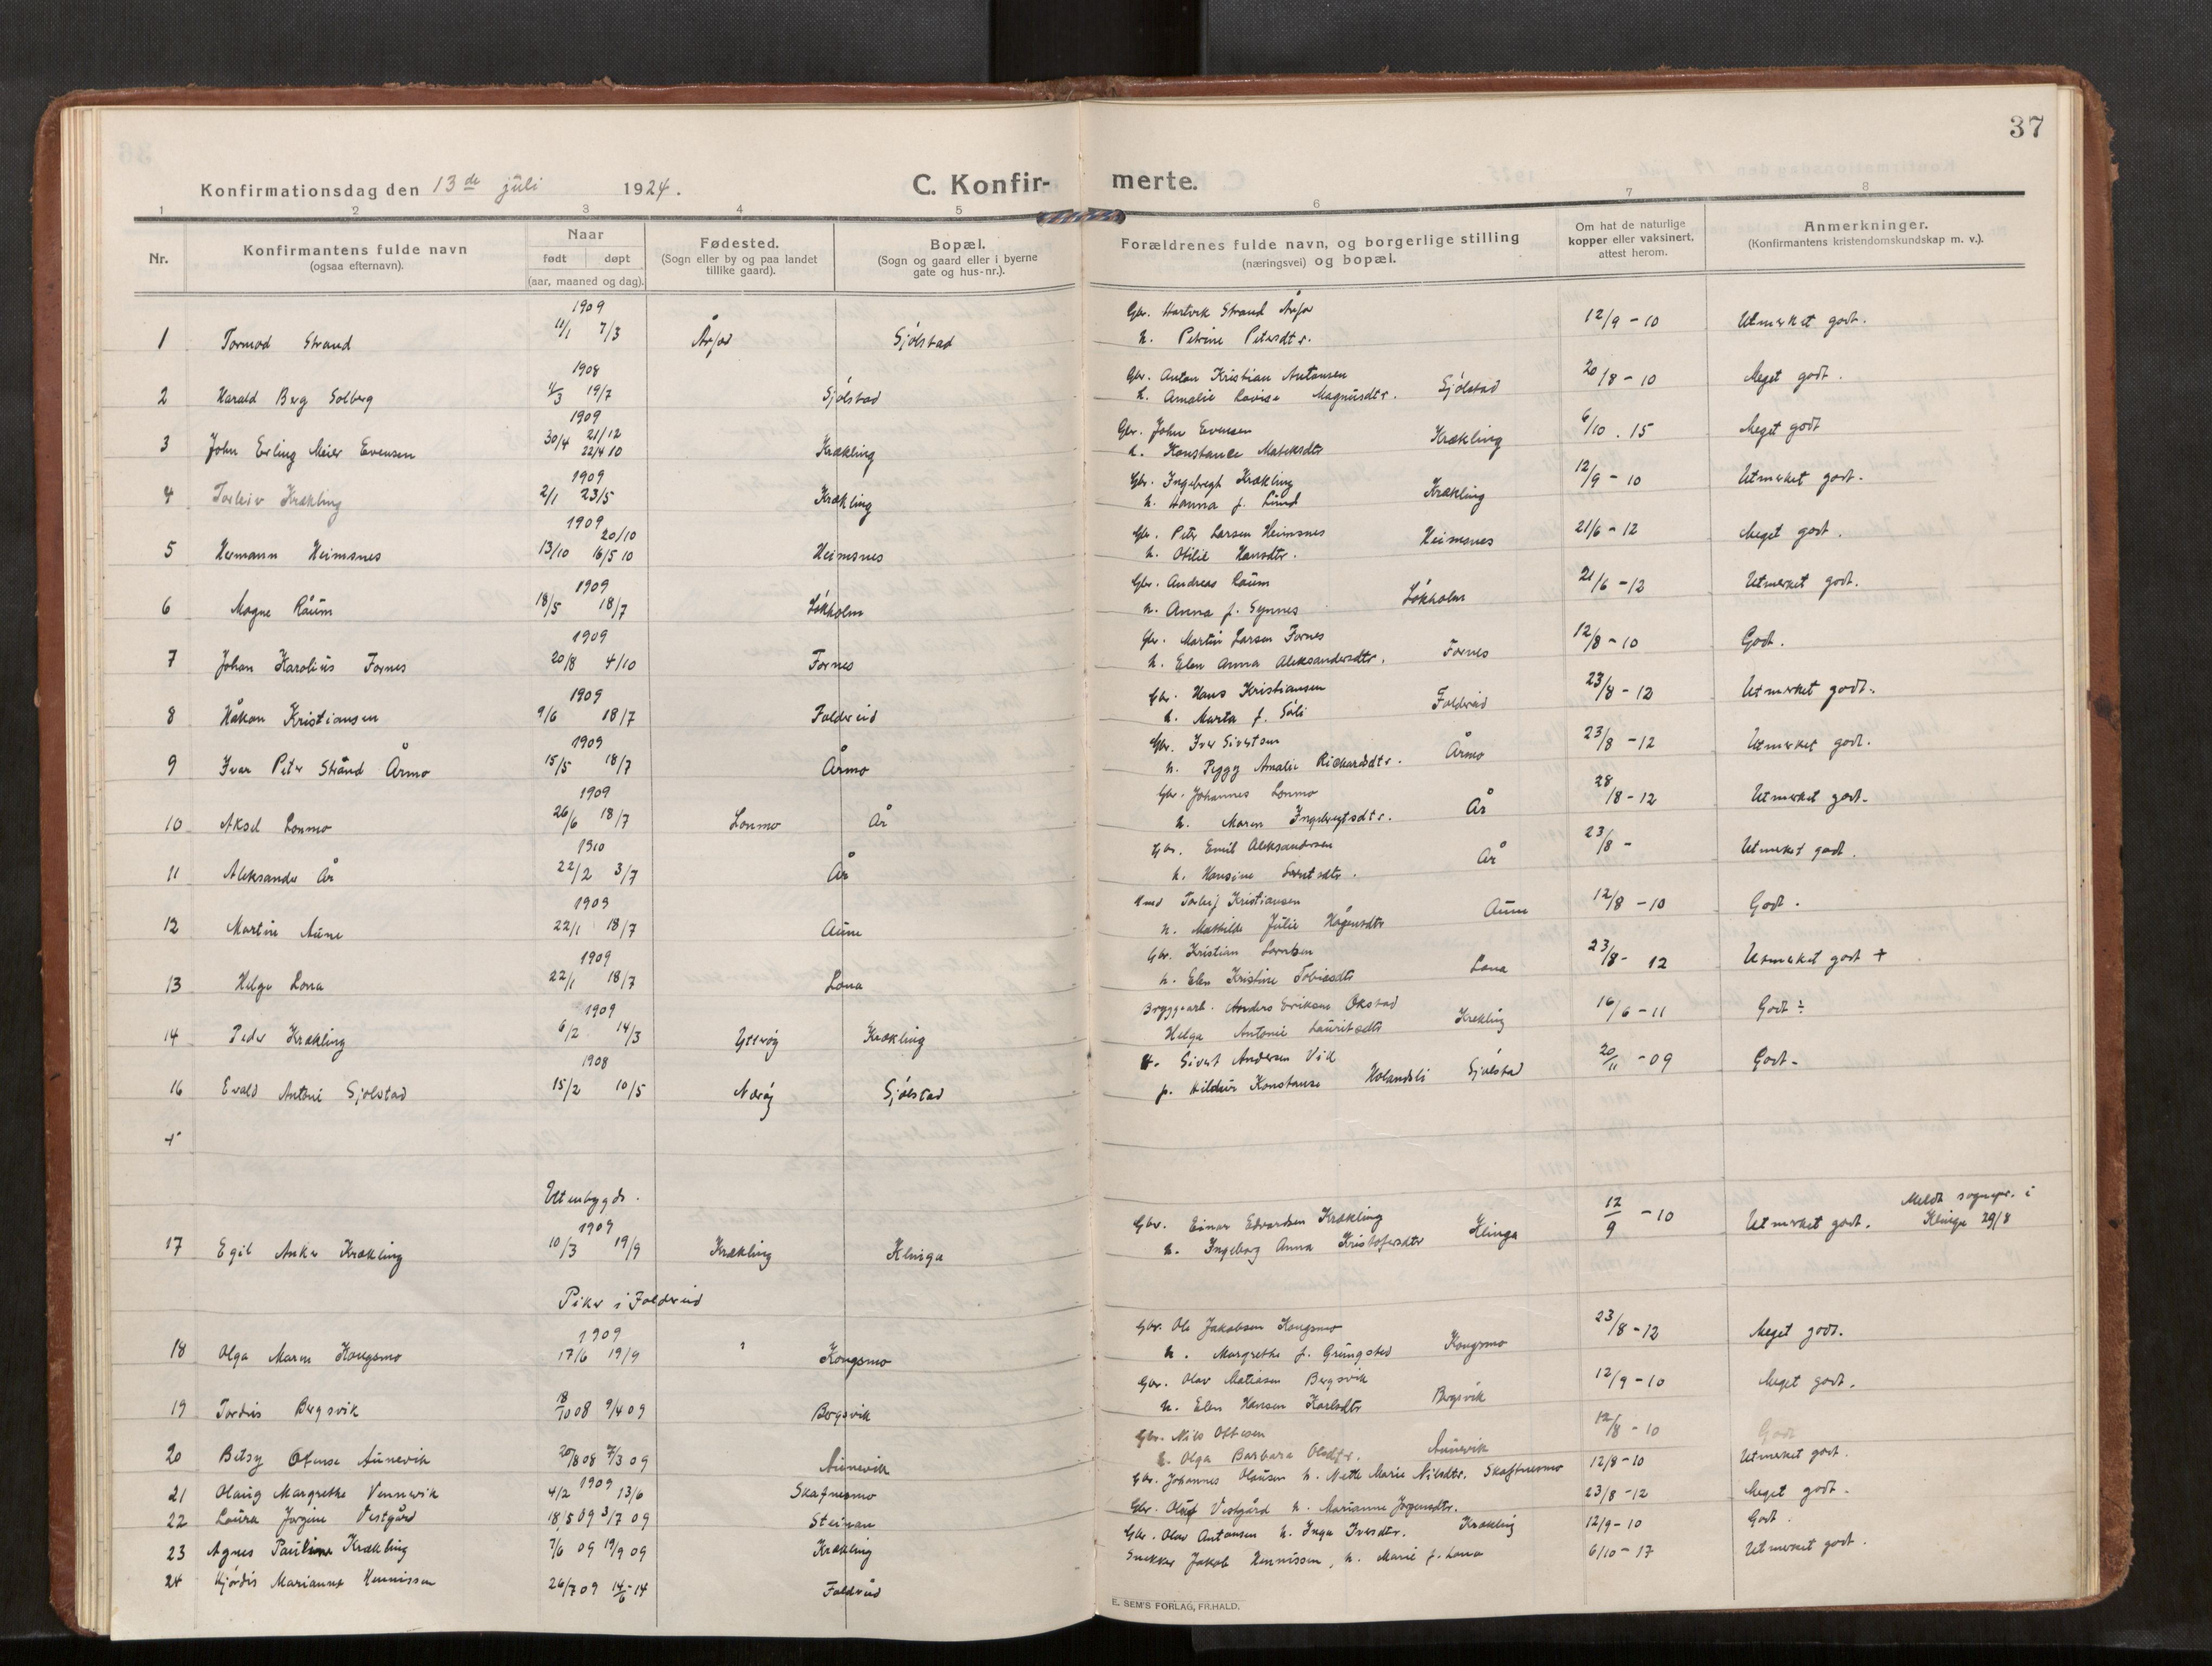 37
Konfirmationsdag den 13de juli 1924. C. Konfirmerte.
1 2 3 4 5 6 7 8
Nr. Konfirmantens fulde navn (ogsaa efternavn). Naar født døpt (aar, maaned og dag). Fødested. (Sogn eller by og paa landet tillike gaard). Bopæl. (Sogn og gaard eller i byerne gate og hus-nr.). Forældrenes fulde navn, og borgerlige stilling (næringsvei) og bopæl. Om hat de naturlige kopper eller vaksinert, attest herom. Anmerkninger. (Konfirmantens kristendomskundskap m. v.).
1909 Gbr. Hartvik Strand Årfor
1 Tormod Strand 11/1 7/3 Årfor Sjölstad h. Petrine Petersdtr. 12/9 - 10 Utmerket godt.
1908 Gbr. Anton Kristian Antonsen
2 Harald Berg Solberg 4/3 19/7 Sjölstad h. Amalie Lovise Magnusdtr. Sjölstad 20/8 - 10 Meget godt.
1909 Gbr. John Evensen
3 John Erling Meier Evensen 30/4 21/12 22/4 10 Krækling h. Konstance Krækling 6/10 . 15 Meget godt
1909 Gbr. Ingebregt Krækling
4 Torleiv Krækling 2/1 23/5 Krækling h. Hanna f. Lund Krækling 12/9 - 10 Utmerket godt.
1909 20/10 Gbr. Peter Larsen Heimsnes
5 Hermann Heimsnes 13/10 16/5 10 Heimsnes h. Otilie Hansdtr. Heimsnes 21/6 - 12 Meget godt.
1909 Gbr. Andreas Raum
6 Magne Raum 18/5 18/7 Lökholm h. Anna f. Synnes Lökholm 21/6 - 12 Utmerket godt.
1909 Gbr. Martin Larsen Fornes
7 Johan Karolius Fornes 20/8 4/10 Fornes h. Elen Anna Aleksandersdtr. Fornes 12/8 - 10 Godt.
1909 Gbr. Hans Kristiansen
8 Håkon Kristiansen 9/6 18/7 Foldereid h. Marta f. Sæli Foldereid 23/8 - 12 Utmerket godt.
1909 Gbr. Iver Sivertsen
9 Ivar Peter Strand Årmo 15/5 18/7 Årmo h. Peggy Amalie Rickardsdtr. Årmo 23/8 - 12 Utmerket godt.
1909 Gbr. Johannes Lonmo
10 Aksel Lonmo 26/6 18/7 Lonmo År h. Maren Ingebregtsdtr. År 28/8 - 12 Utmerket godt.
1910 Gbr. Emil Aleksandersen
11 Aleksander År 22/2 3/7 År h. Hansine Berntsdtr. År 23/8 - Utmerket godt.
1909 Torleif Kristiansen
12 Martin Aune 22/1 18/7 Aune h. Mathilde Julie Hågensdtr Aune 12/8 - 10 Godt.
1909 Gbr. Kristian Lorntsen
13 Helge Lona 22/1 18/7 Lona h. Elen Kristine Tobiasdtr Lona 23/8 - 12 Utmerket godt +
1909 Bryggearb. Anders Eriksen Okstad
14 Peder Krækling 6/2 14/3 Ytterøy Krækling Helga Antonie Lauritsdtr Krekling 16/6 - 11 Godt ÷
1908 Sivert Andersen Vik
16 Evald Antoni Sjölstad 15/2 10/5 Nærøy Sjölstad p. Hildur Konstanse Holandsli Sjölstad 20/11 - 09 Godt.
+
Utenbygds.
1909 Gbr. Einar Edvardsen Krækling Meldt sognepr. i
17 Egil Anker Krækling 10/3 19/9 Krækling Klinga h. Ingeborg Anna Kristofersdtr Klinga 12/9 - 10 Utmerket godt. Klinga 29/8
Piker i Foldereid
1909 Gbr. Ole Jakobsen Kongsmo
18 Olga Maren Kongsmo 17/6 19/9 Kongsmo h. Margrethe f. Grungstad Kongsmo 23/8 - 12 Meget godt.
Gbr. Olav Matiasen Bergsvik
19 Tordis Bergsvik 18/10 08 9/4 09 Bergsvik h. Elen Hansen Karlsdtr Bergsvik 12/9 - 10 Meget godt.
Gbr. Nils Ottesen
20 Betsy Otense Aunevik 20/8 08 7/3 09 Aunevik h. Olga Barbara Olsdtr. Aunevik 12/8 - 10 Godt
21 Olaug Margrethe Vennevik 4/2 1909 13/6 Skafnesmo Gbr. Johannes Olausen h. Nette Marie Nilsdtr. Skaftnesmo 12/8 - 10 Utmerket godt.
22 Laura Jörgine Vestgård 18/5 09 3/7 09 Steinan Gbr. Oluf Vestgård h. Marianne Jörgensdtr. 23/8 - 12 Meget godt.
23 Agnes Pauline Krækling 7/6 09 19/9 09 Krækling Gbr. Olav Antonsen h. Inga Iversdtr. Krækling 12/9 - 10 Godt.
24 Hjördis Marianne Hennissen 26/7 09 14/6 - 14 Foldreid Snekker Jakob Hennissen, h. Marie f. Lona 6/10 - 17 Utmerket godt.
E. SEM'S FORLAG, FR.HALD.